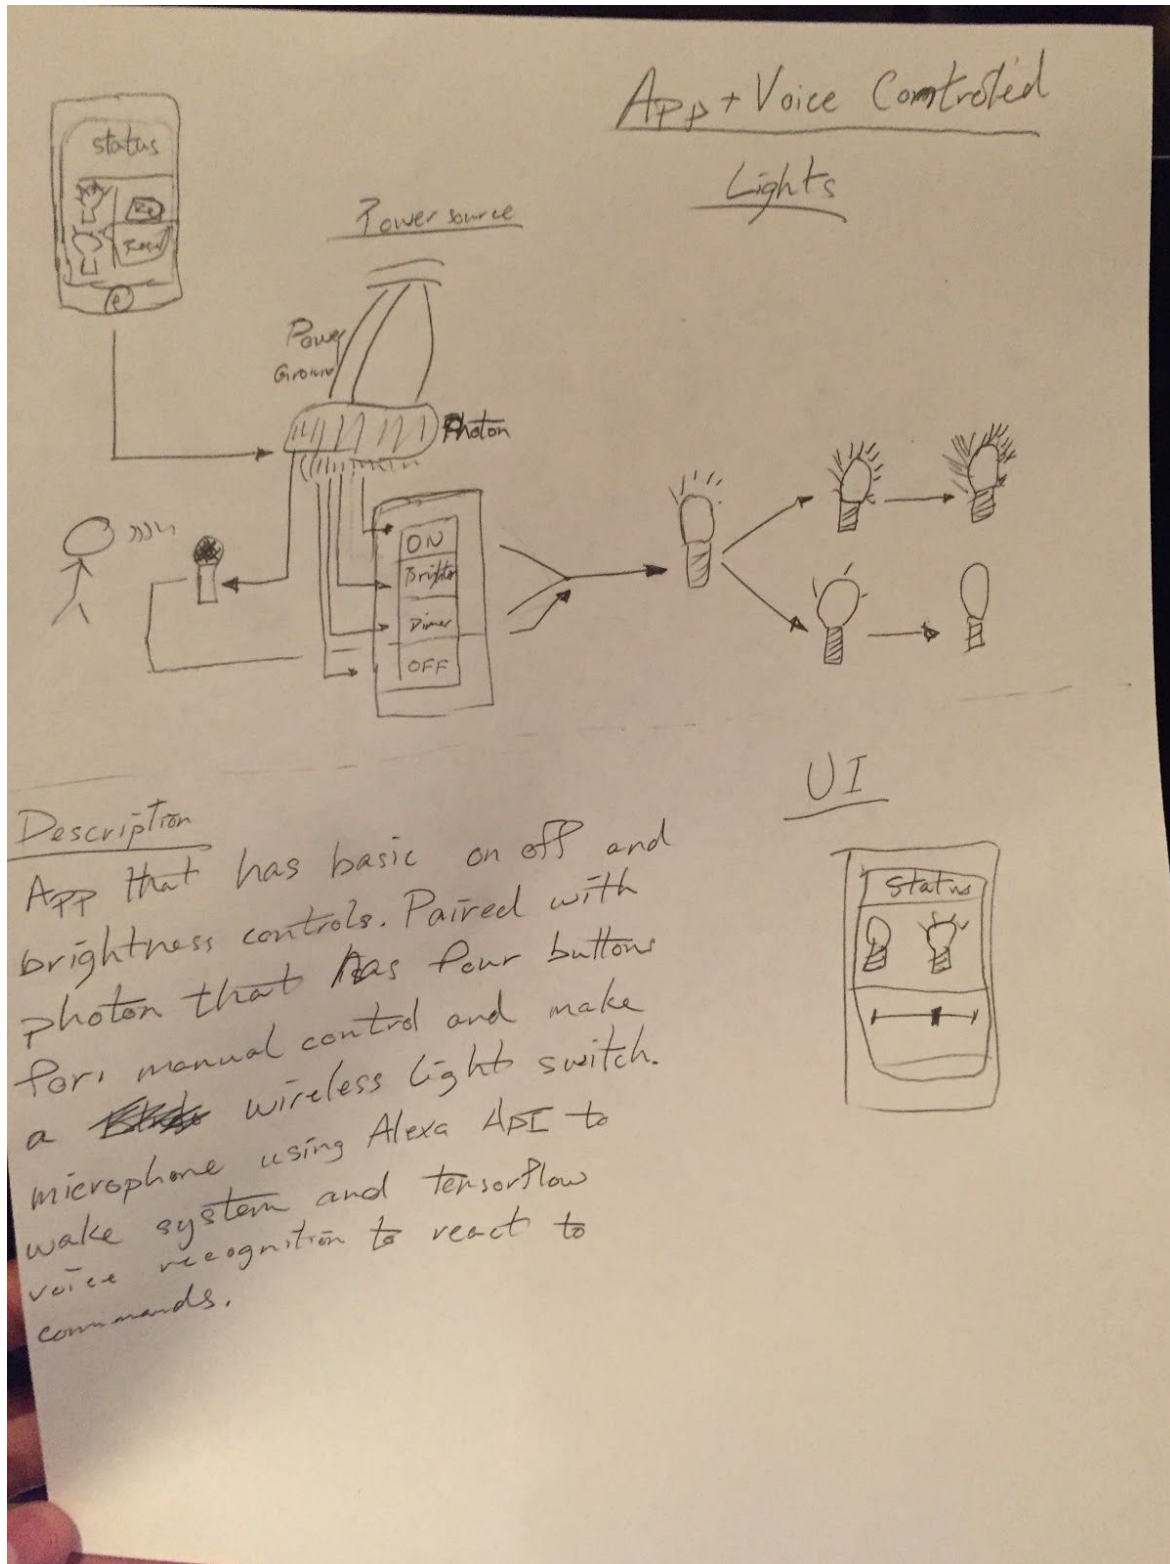 App + Voice Comtroled
Lights
status
Power source
Power
Ground
Photon
ON
Brighter
Dimer
OFF
Description
App that has basic on off and
brightness controls. Paired with
photon that has four buttons
for, manual control and make
a wireless light switch.
microphone using Alexa API to
wake system and tensorflow
voice recognition to react to
commands.
UI
Status